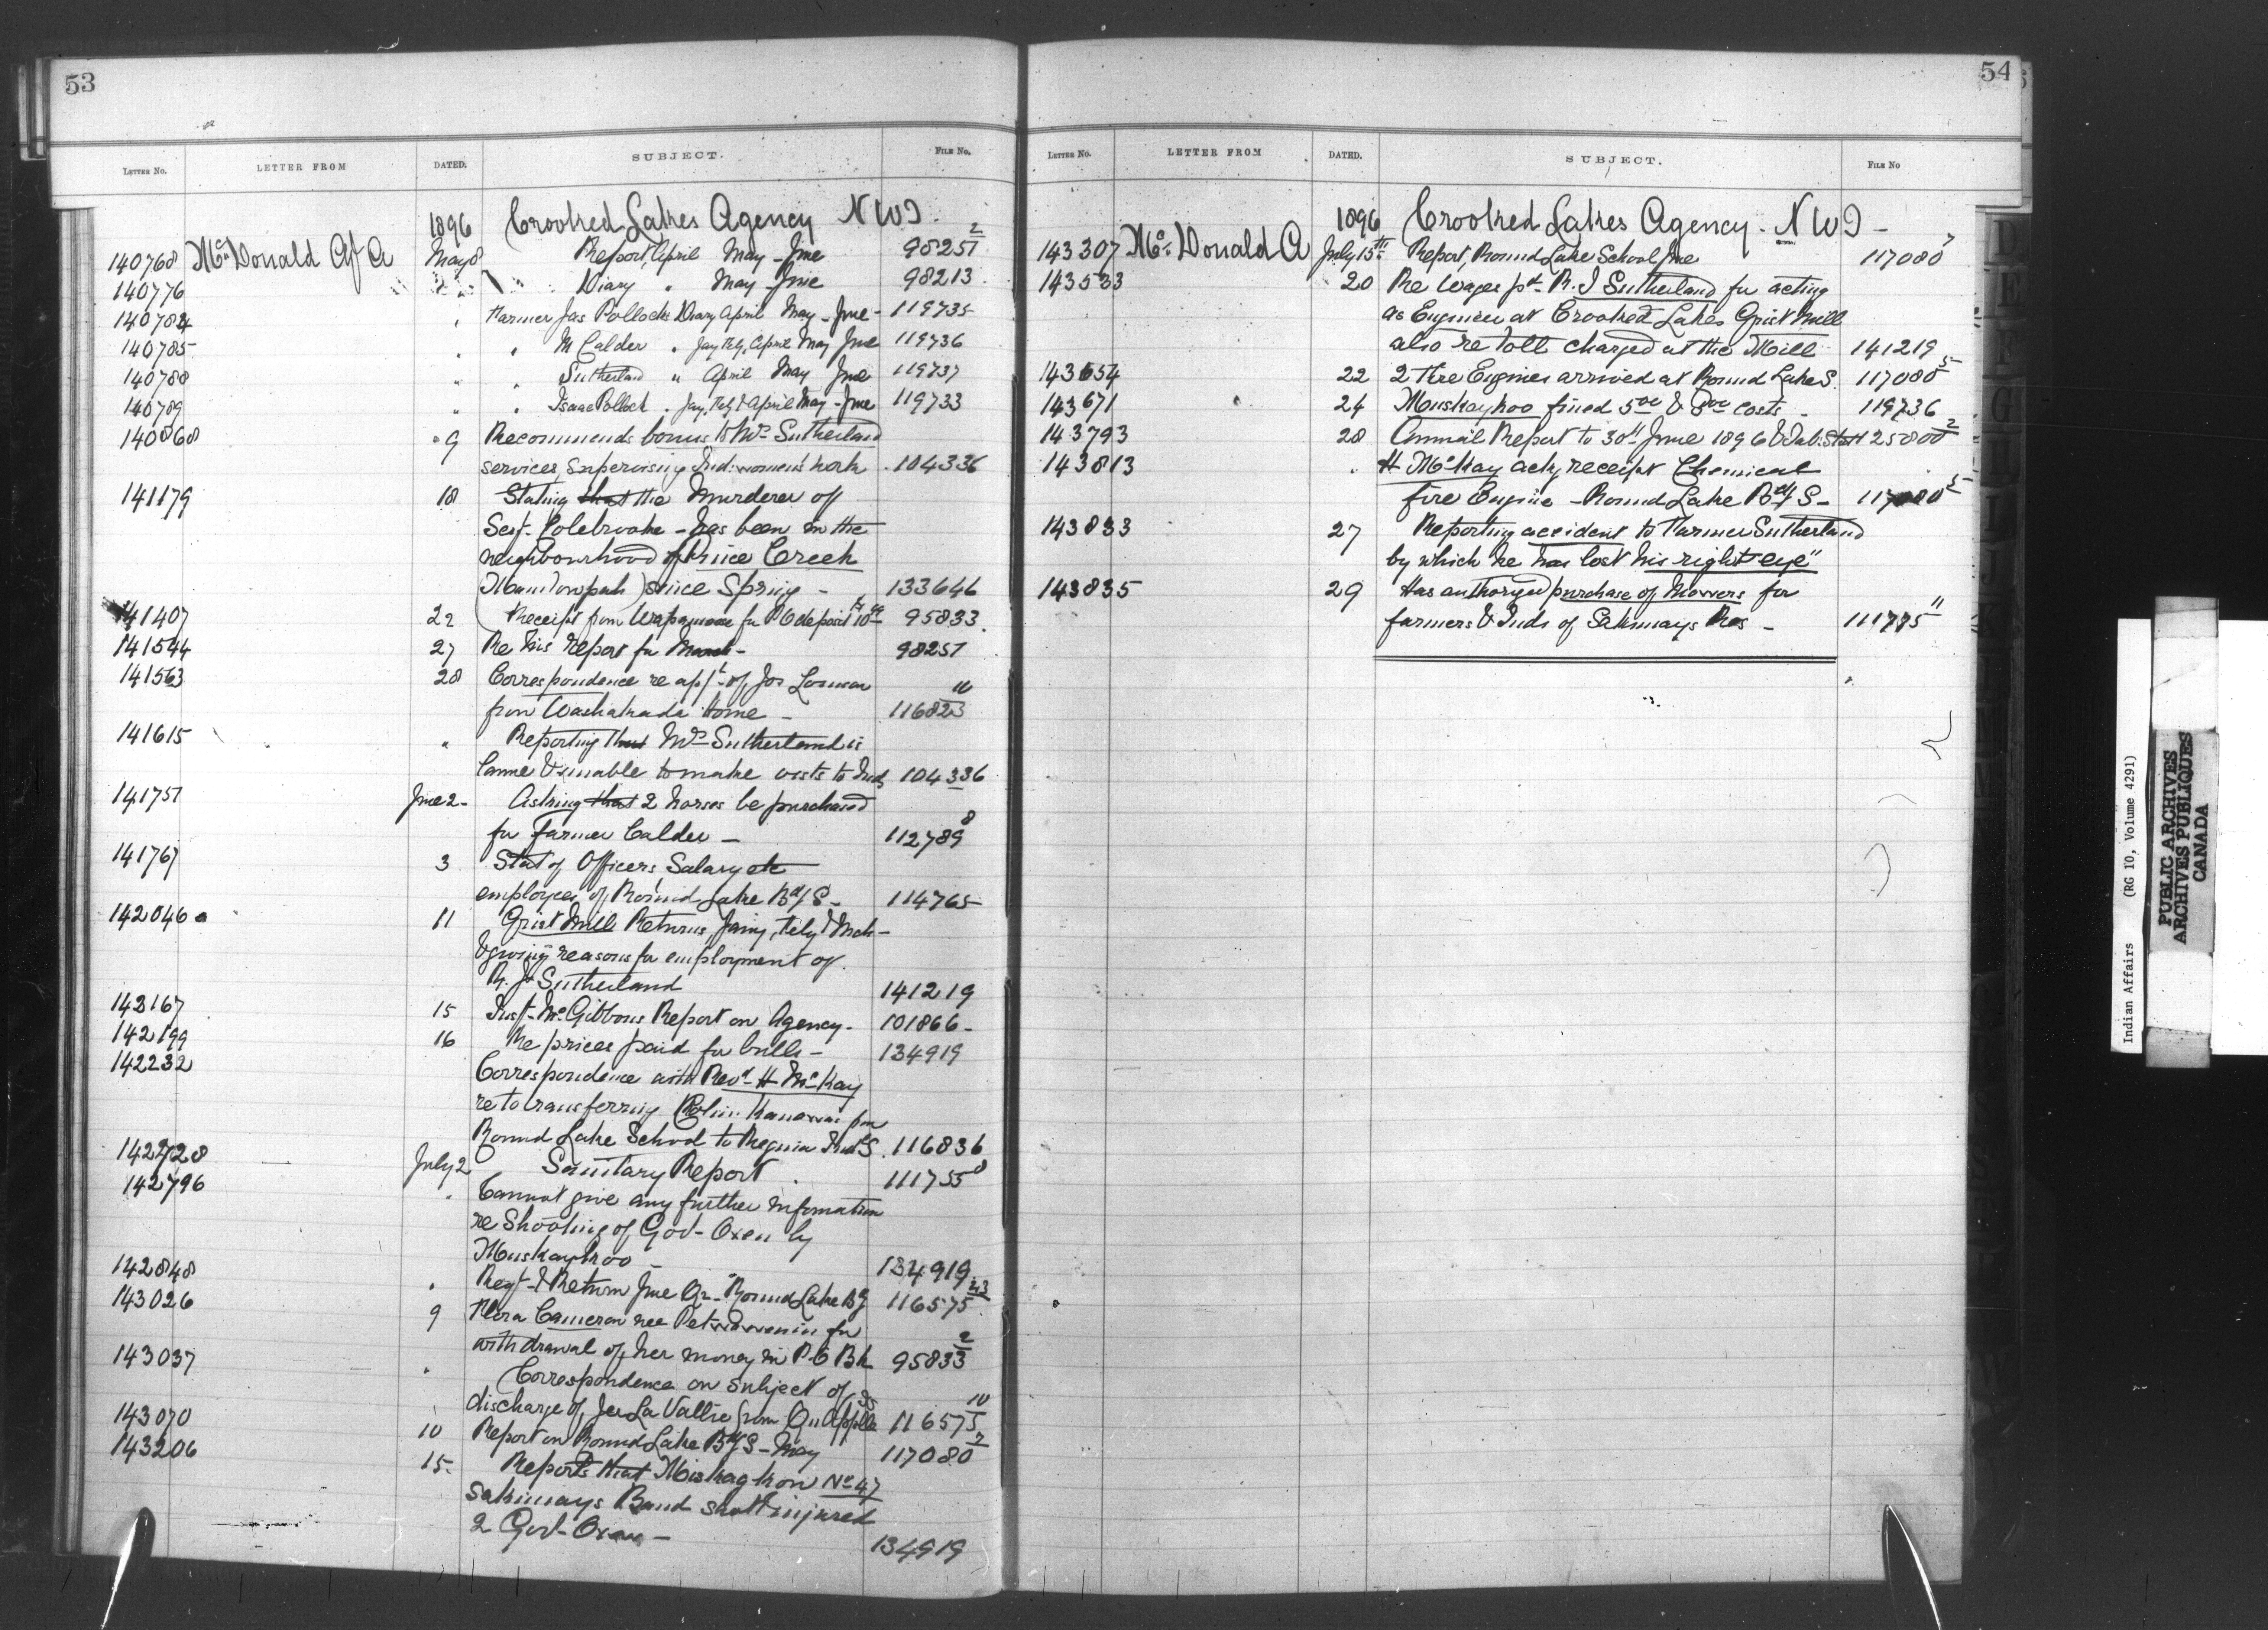 53
LETTER NO. LETTER FROM DATED. SUBJECT. FILE No.
1896 Crooked Lakes Agency N W T.
140768 McDonald Af A May 8 Report, April May - June 98251 2
140776 Diary " May June 98213
140784 " Farmer Jas Pollock's Diary April May - June - 119735
140785 " " M Calder " Jany Feby, April May June 119736
140788 " " Sutherland " April May June 119737
140789 " " Isaac Pollock " Jany, Feby & April May - June 119733
140868 " 9 Recommends bonus to Mrs Sutherland
services supervising Ind: women's work 104336
141179 18 Stating that the Murderer of
Sergt. Colebrooke - has been in the
neighbourhood of Prince Creek
since Spring - 133646
141407 22 Receipt from for P.O deposit 95833
141544 27 Re his Report for March - 98251
141563 28 Correspondence re appt of Jos
from Washakada Home - 116823 10
141615 " Reporting that Mrs Sutherland is
lame & unable to make visits to Inds 104336
141751 June 2 - Asking that 2 horses be purchased
for Farmer Calder - 112789 8
141767 3 Stat of Officers Salary etc
employees of Round Lake Bdg S - 114765
142046 11 Grist Mill Returns, Jany, Feby & Mch -
& giving reasons for employment of
R. J. Sutherland 141219
142167 15 Inspr McGibbons Report on Agency - 101866 -
142199 16 Re prices paid for bulls - 134919
142232 Correspondence with Revd H McKay
re to transferring from
Round Lake School to Regina Indl S. 116836
142728 July 2 Sanitary Report 111755 8
142796 " Cannot give any further information
re Shooting of Govt Oxen by
Muskaykoo - 134919
142848 " Regt & Return June Qr - Round Lake B S 116575 23
143026 9 Flora Cameron nee for
withdrawal of her money in P.O Bk 95833 2
143037 " Correspondence on subject of
discharge of La Vallie from Qu'Appelle I S 116575 10
143070 10 Report on Round Lake Bdg S - May 117080 7
143206 15 - Reports that No 47
Sakimays Band shot & injured
2 Govt Oxen - 134919
54
LETTER NO. LETTER FROM DATED. SUBJECT. FILE No
1896 Crooked Lakes Agency - N W T -
143307 McDonald A July 15th Report, Round Lake School June 117080 7
143533 20 Re Wages pd R. J Sutherland for acting
as Engineer at Crooked Lakes Grist Mill
also re toll charged at the Mill 141219
143654 22 2 Fire Engines arrived at Round Lake S. 117080 5
143671 24 Muskaykoo fined 5 00 & 8 00 costs - 119736
143793 28 Annual Report to 30th June 1896 & Tab: Statt 25800 2
143813 " H McKay ackg receipt Chemical
fire Engine - Round Lake Bdg S - 117080 5
143833 27 Reporting accident to Farmer Sutherland
by which he has lost his right eye"
143835 29 Has authorized purchase of Mowers for
farmers & Inds of Sakimays Res - 111775 11
Indian Affairs (RG 10, Volume 4291)
PUBLIC ARCHIVES
ARCHIVES PUBLIQUES
CANADA